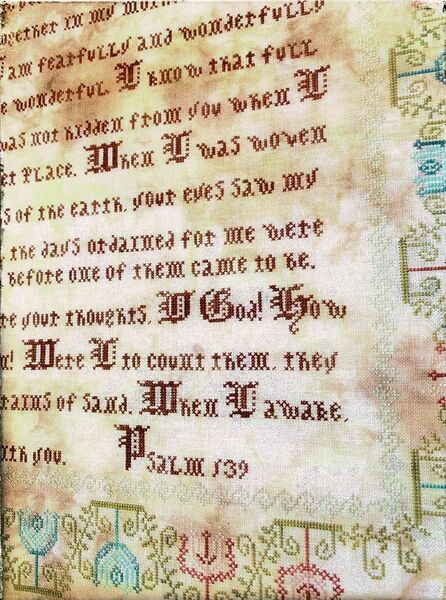 ogether in my moth
I am fearfully and wonderfully
e wonderful. I know that full
was not hidden from you when I
et place. When I was woven
s of the earth, your eyes saw my
, the days ordained for me were
before one of them came to be.
re your thoughts, O God! How
m! Were I to count them, they
rains of sand. When I awake,
ith you.
Psalm 139